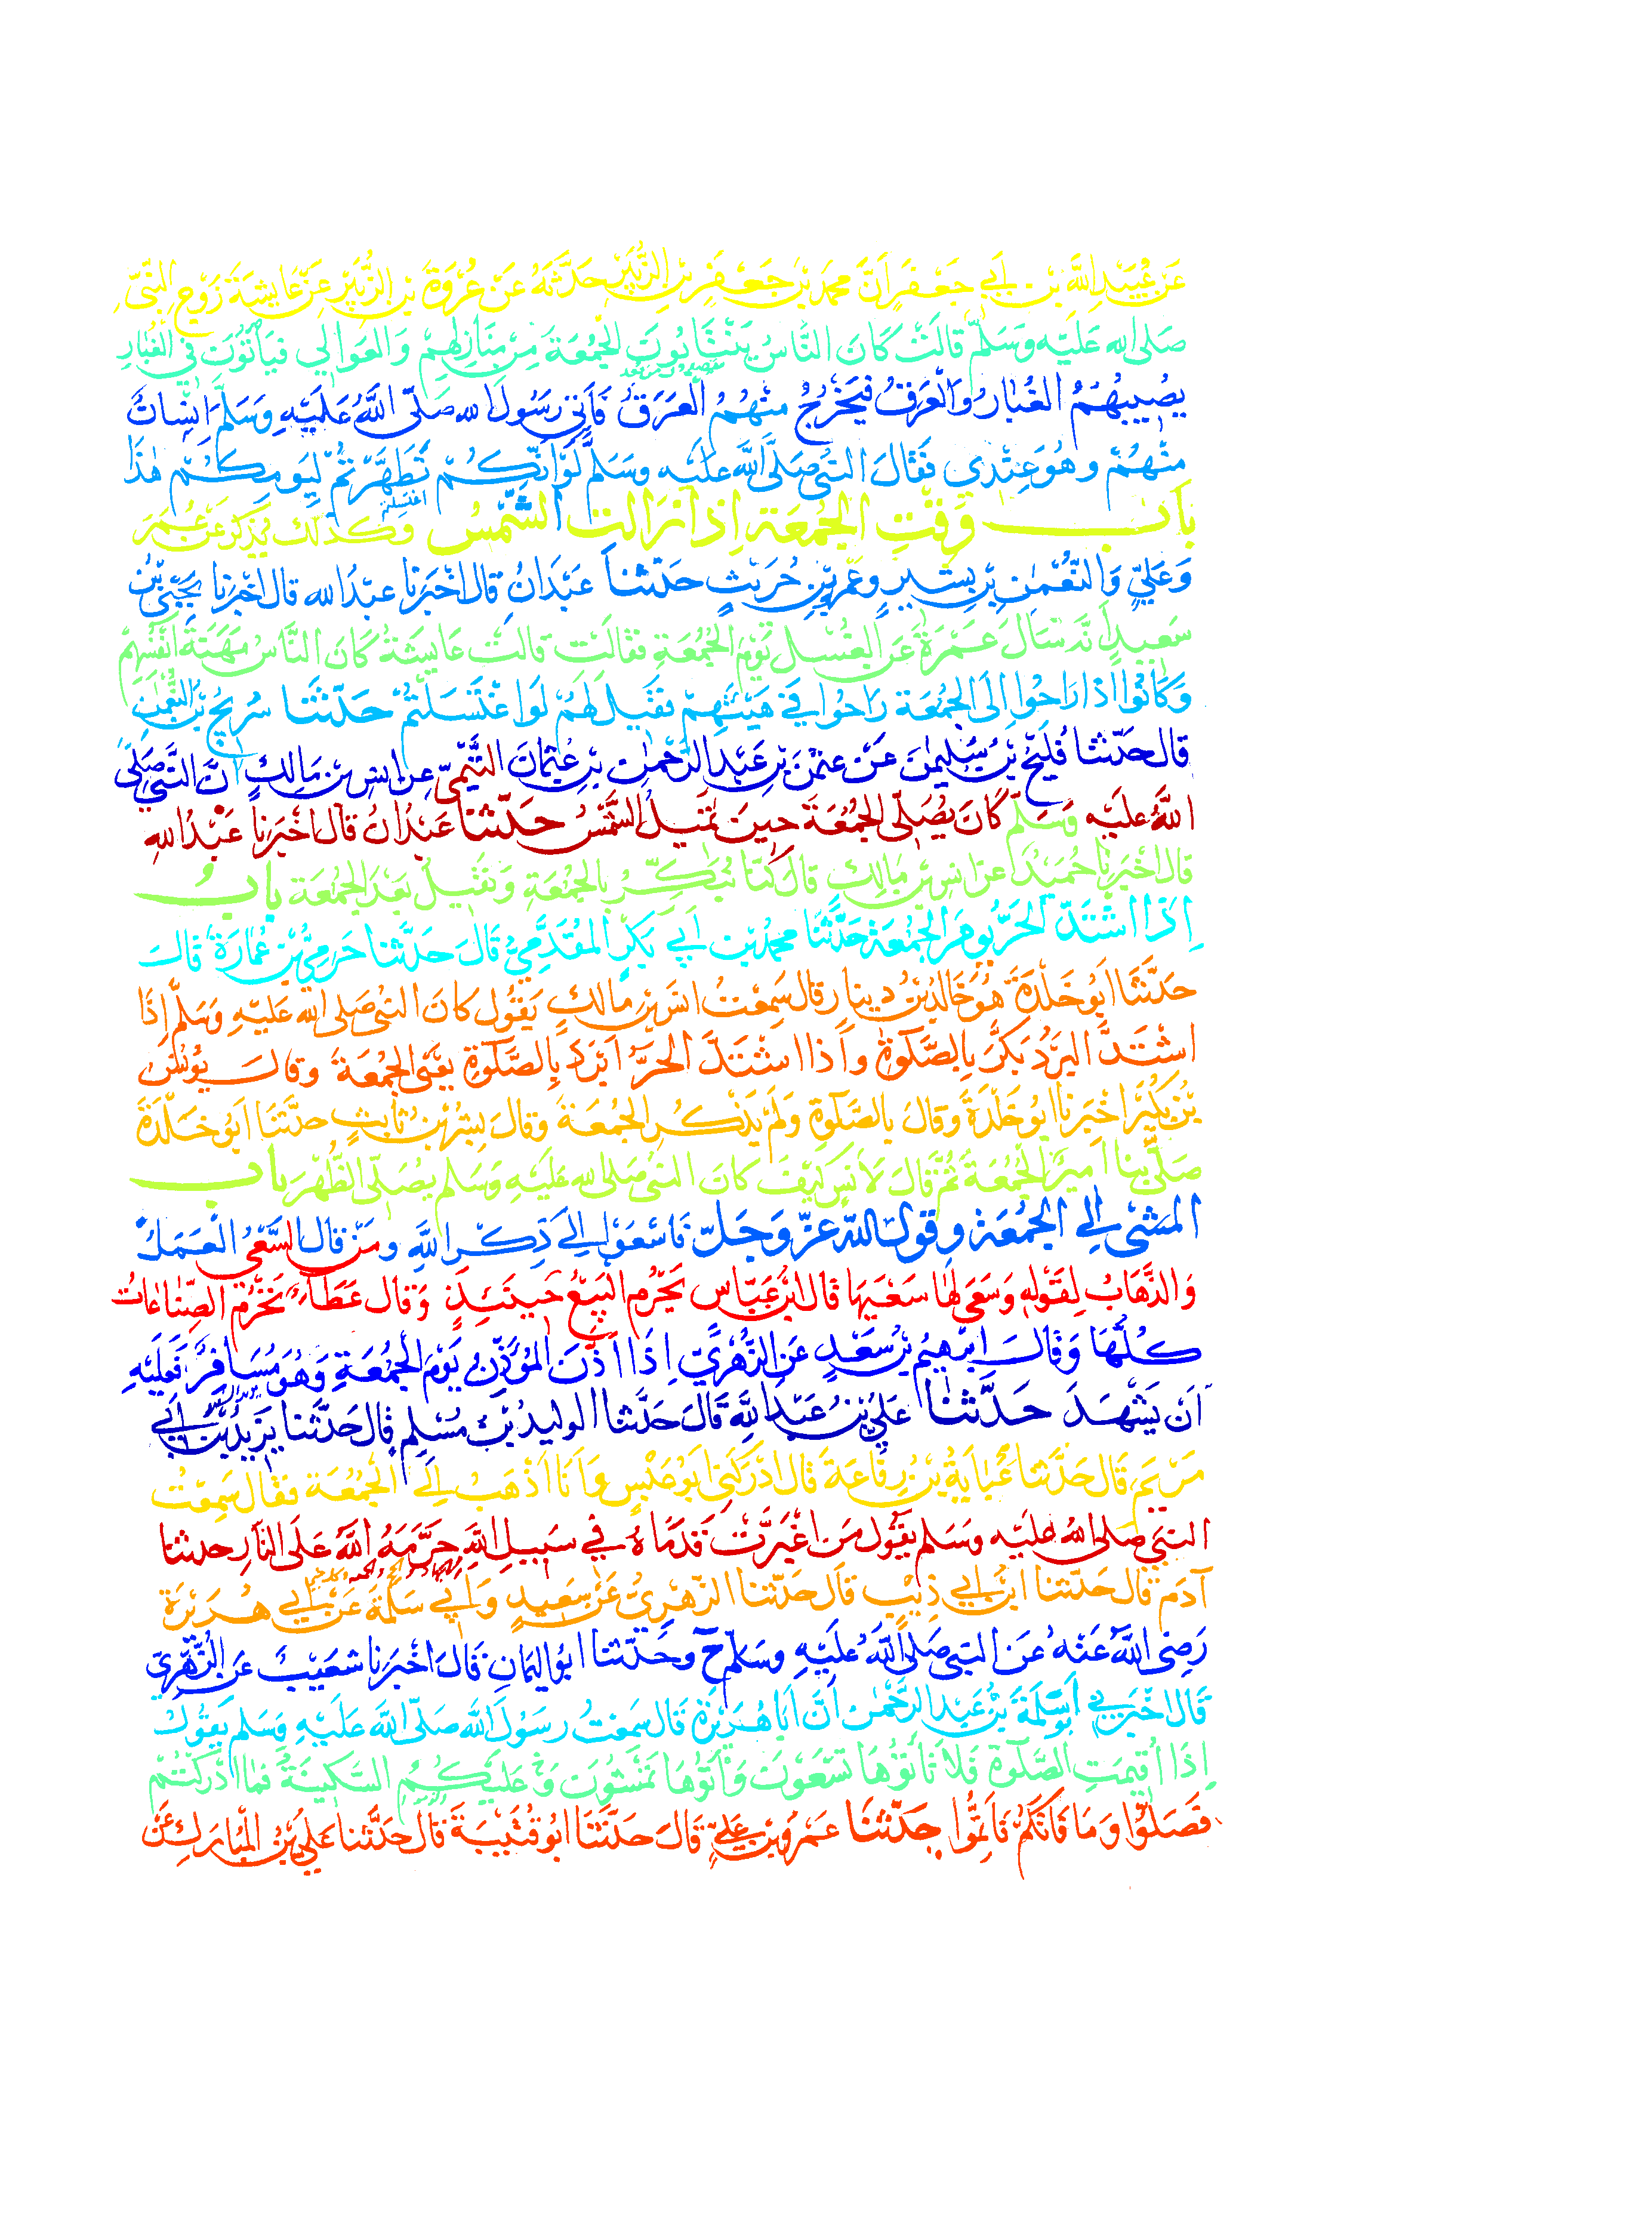 عَنْ عُبَيْدِ اللَّهِ بْنِ اَبِي جَعْفَرٍ اَنَّ مُحَمَّدَ بْنَ جَعْفَرِ بْنِ الزُّبَيْرِ حَدَّثَهُ عَنْ عُرْوَةَ بْنِ الزُّبَيْرِ عَنْ عَايِشَةَ زَوْجِ النَّبِيِّ
صَلى الله عَلَيْه وَسَلَّم قَالَتْ كَانَ النَّاسُ يَنْتَابُونَ الْجُمُعَةَ مِنْ مَنَازِلِهِمْ وَالْعَوَالِي فَيَأْتُونَ فِي الْغُبَارِ
يُصِيبُهُمُ الْغُبَارُ وَالْعَرَقُ فَيَخْرُجُ مِنْهُمُ الْعَرَقُ فَاَتَى رَسُولَ الله صَلَّى اللَّهُ عَلَيْهِ وَسَلَّمَ اِنْسَانٌ
مِنْهُمْ وَهُوَ عِنْدِي فَقَالَ النَّبِيُّ صَلَّى اللَّهُ عَلَيْهِ وَسَلَّم لَوْ اَنَّكُمْ تَطَهَّرْتُمْ لِيَوْمِكُمْ هٰذَا
بَابُ وَقْتِ الْجُمُعَةِ اِذَا زَالَتِ الشَّمْسُ وَكَذٰلِكَ يُذْكَرُ عَنْ عُمَرَ
وَعَلِيٍّ وَالنُّعْمٰنِ بْنِ بَشِيرٍ وَعَمْرِو بْنِ حُرَيْثٍ حَدَّثَنَا عَبْدَانُ قَالَ اَخْبَرَنَا عَبْدُ الله قَالَ اَخْبَرَنَا يَحْيَى بْنُ
سَعِيدٍ اَنَّهُ سَاَلَ عَمْرَةَ عَنِ الْغُسْلِ يَوْمَ الْجُمُعَةِ فَقَالَتْ قَالَتْ عَايِشَةُ كَانَ النَّاسُ مَهَنَةَ اَنْفُسِهِمْ
وَكَانُوا اِذَا رَاحُوا اِلَى الْجُمُعَةِ رَاحُوا فِي هَيْئَتِهِمْ فَقِيلَ لَهُمْ لَوِ اغْتَسَلْتُمْ حَدَّثَنَا سُرَيْجُ بْنُ النُّعْمٰنِ
قَالَ حَدَّثَنَا فُلَيْحُ بْنُ سُلَيْمٰنَ عَنْ عُثْمٰنَ بْنِ عَبْدِ الرَّحْمٰنِ بْنِ عُثْمَانَ التَّيْمِيِّ عَنْ اَنَسِ بْنِ مَالِكٍ اَنَّ النَّبِيَّ صَلَّى
اللَّهُ عَلَيْهِ وَسَلَّم كَانَ يُصَلِّي الْجُمُعَةَ حِينَ تَمِيلُ الشَّمْسُ حَدَّثَنَا عَبْدَانُ قَالَ اَخْبَرَنَا عَبْدُ اللهِ
قَالَ اَخْبَرَنَا حُمَيْدٌ عَنْ اَنَسِ بْنِ مَالِكٍ قَالَ كُنَّا نُبَكِّرُ بِالْجُمُعَةِ وَنَقِيلُ بَعْدَ الْجُمُعَةِ بَابُ
اِذَا اشْتَدَّ الْحَرُّ يَوْمَ الْجُمُعَةِ حَدَّثَنَا مُحَمَّدُ بْنُ اَبِي بَكْرٍ الْمُقَدَّمِيُّ قَالَ حَدَّثَنَا حَرَمِيُّ بْنُ عُمَارَةَ قَالَ
حَدَّثَنَا اَبُو خَلْدَةَ هُوَ خَالِدُ بْنُ دِينَارٍ قَالَ سَمِعْتُ اَنَسَ بْنَ مَالِكٍ يَقُولُ كَانَ النَّبِيُّ صَلى الله عَلَيْهِ وَسَلَّم اِذَا
اشْتَدَّ الْبَرْدُ بَكَّرَ بِالصَّلٰوةِ وَاِذَا اشْتَدَّ الْحَرُّ اَبْرَدَ بِالصَّلٰوةِ يَعْنِي الْجُمُعَةَ وَقَالَ يُونُسُ
بْنُ بُكَيْرٍ اَخْبَرَنَا اَبُو خَلْدَةَ وَقَالَ بِالصَّلٰوةِ وَلَمْ يَذْكُرِ الْجُمُعَةَ وَقَالَ بِشْرُ بْنُ ثَابِتٍ حَدَّثَنَا اَبُو خَلْدَةَ
صَلَّى بِنَا اَمِيرٌ الْجُمُعَةَ ثُمَّ قَالَ لِاَنَسٍ كَيْفَ كَانَ النَّبِيُّ صَلى الله عَلَيْهِ وَسَلَّم يُصَلِّي الظُّهْرَ بَابُ
الْمَشْيِ اِلَى الْجُمُعَةِ وَقَوْلِ اللَّهِ عَزَّ وَجَلَّ فَاسْعَوْا اِلَى ذِكْرِ اللَّهِ وَمَنْ قَالَ السَّعْيُ الْعَمَلُ
وَالذَّهَابُ لِقَوْلِهِ وَسَعَى لَهَا سَعْيَهَا قَالَ ابْنُ عَبَّاسٍ يَحْرُمُ الْبَيْعُ حِينَئِذٍ وَقَالَ عَطَاءٌ تَحْرُمُ الصِّنَاعَاتُ
كُلُّهَا وَقَالَ اِبْرٰهِيمُ بْنُ سَعْدٍ عَنِ الزُّهْرِيِّ اِذَا اَذَّنَ الْمُؤَذِّنُ يَوْمَ الْجُمُعَةِ وَهُوَ مُسَافِرٌ فَعَلَيْهِ
اَنْ يَشْهَدَ حَدَّثَنَا عَلِيُّ بْنُ عَبْدِ اللَّهِ قَالَ حَدَّثَنَا الْوَلِيدُ بْنُ مُسْلِمٍ قَالَ حَدَّثَنَا يَزِيدُ بْنُ اَبِي
مَرْيَمَ قَالَ حَدَّثَنَا عَبَايَةُ بْنُ رِفَاعَةَ قَالَ اَدْرَكَنِي اَبُو عَبْسٍ وَاَنَا اَذْهَبُ اِلَى الْجُمُعَةِ فَقَالَ سَمِعْتُ
النَّبِيَّ صَلى اللهُ عَلَيْهِ وَسَلَّم يَقُولُ مَنِ اغْبَرَّتْ قَدَمَاهُ فِي سَبِيلِ اللَّهِ حَرَّمَهُ اللَّهُ عَلَى النَّارِ حدثنا
آدَمُ قَالَ حَدَّثَنَا ابْنُ اَبِي ذِيْبٍ قَالَ حَدَّثَنَا الزُّهْرِيُّ عَنْ سَعِيدٍ وَاَبِي سَلَمَةَ عَنْ اَبِي هُرَيْرَةَ
رَضِيَ اللَّهُ عَنْهُ عَنِ النَّبِيِّ صَلَّى اللَّهُ عَلَيْهِ وَسَلَّم ح وَحَدَّثَنَا اَبُو الْيَمَانِ قَالَ اَخْبَرَنَا شُعَيْبٌ عَنِ الزُّهْرِيِّ
قَالَ اَخْبَرَنِي اَبُو سَلَمَةَ بْنُ عَبْدِ الرَّحْمٰنِ اَنَّ اَبَا هُرَيْرَةَ قَالَ سَمِعْتُ رَسُولَ اللَّهِ صَلَّى اللَّهُ عَلَيْهِ وَسَلَّم يَقُولُ
اِذَا اُقِيمَتِ الصَّلٰوةُ فَلَا تَأْتُوهَا تَسْعَوْنَ وَأْتُوهَا تَمْشُونَ وَعَلَيْكُمُ السَّكِينَةُ فَمَا اَدْرَكْتُمْ
فَصَلُّوا وَمَا فَاتَكُمْ فَاَتِمُّوا حَدَّثَنَا عَمْرُو بْنُ عَلِيٍّ قَالَ حَدَّثَنَا اَبُو قُتَيْبَةَ قَالَ حَدَّثَنَا عَلِيُّ بْنُ الْمُبَارَكِ عَنْ